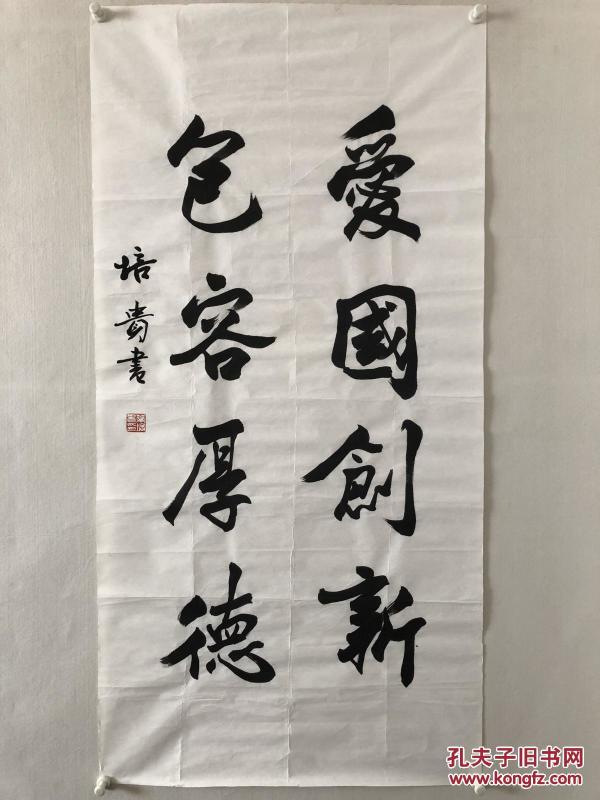 愛國創新
包容厚德
培貴書
孔夫子旧书网
www.kongfz.com